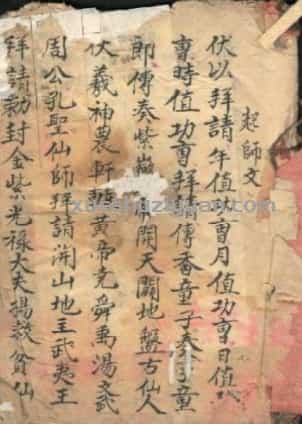 起師文
伏以拜請年值功曹月值功曹日值
曹時值功曹拜請傳香童子奏事童
即傳奏紫 開天闢地盤古仙人
伏羲神農軒轅黃帝堯舜禹湯文武
周公孔聖仙師拜請開山地主武夷王
拜請勅封金紫光祿大夫楊救貧仙